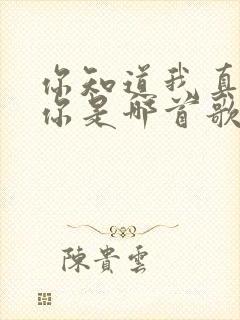 你知道我真
你是哪首歌
陳貴雲